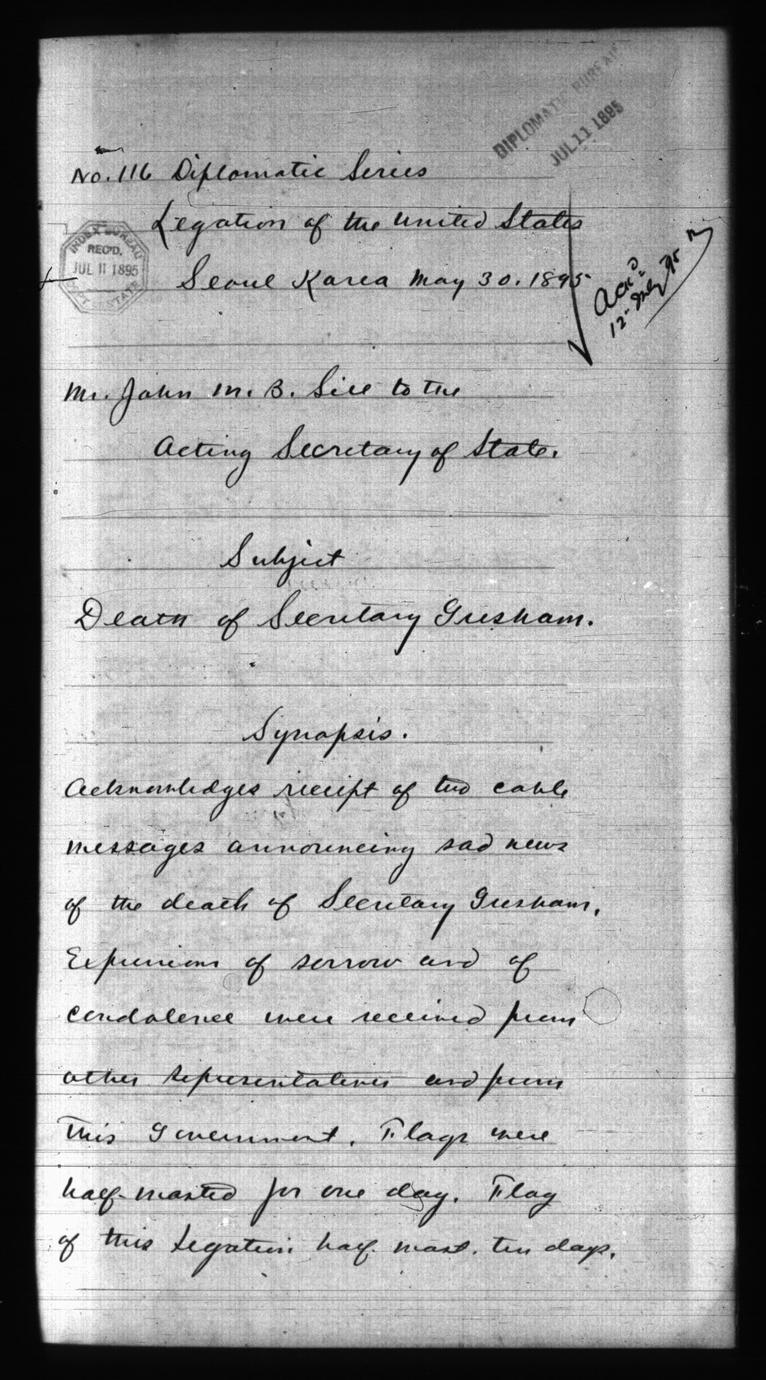 DIPLOMATIC BUREAU
JUL 11 1895
No. 116 Diplomatic Series
Legation of the United States
INDEX BUREAU
REC'D.
JUL 11 1895
DEPT. OF STATE
Seoul Korea May 30. 1895
Ack'd
12 July 95
Mr. John M. B. Sill to the
Acting Secretary of State.
Subject
Death of Secretary Gresham.
Synopsis.
Acknowledges receipt of two cable
messages announcing sad news
of the death of Secretary Gresham.
Expressions of sorrow and of
condolence were received from
other representatives and from
this Government. Flags were
half-masted for one day. Flag
of this Legation half mast. ten days.